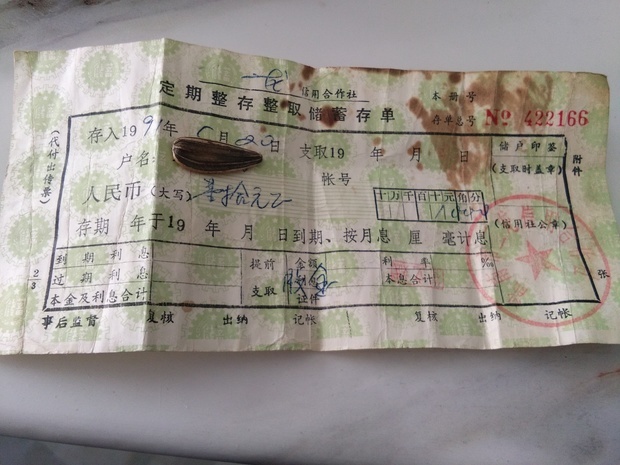 信用合作社
定期整存整取储蓄存单
本册号
存单总号 No 422166
(代付出传票)
存入1991年 月20日 支取19 年 月 日
户名:
帐号
人民币(大写)
拾元
十万千百十元角分
存期 年于19 年 月 日到期、按月息 厘 毫计息
储户印签
(支取时盖章)
(信用社公章)
附件
张
到期利息
过期利息
本金及利息合计
提前支取
金额
证件
利率 ‰
本息合计
事后监督 复核 出纳 记帐 复核 出纳 记帐